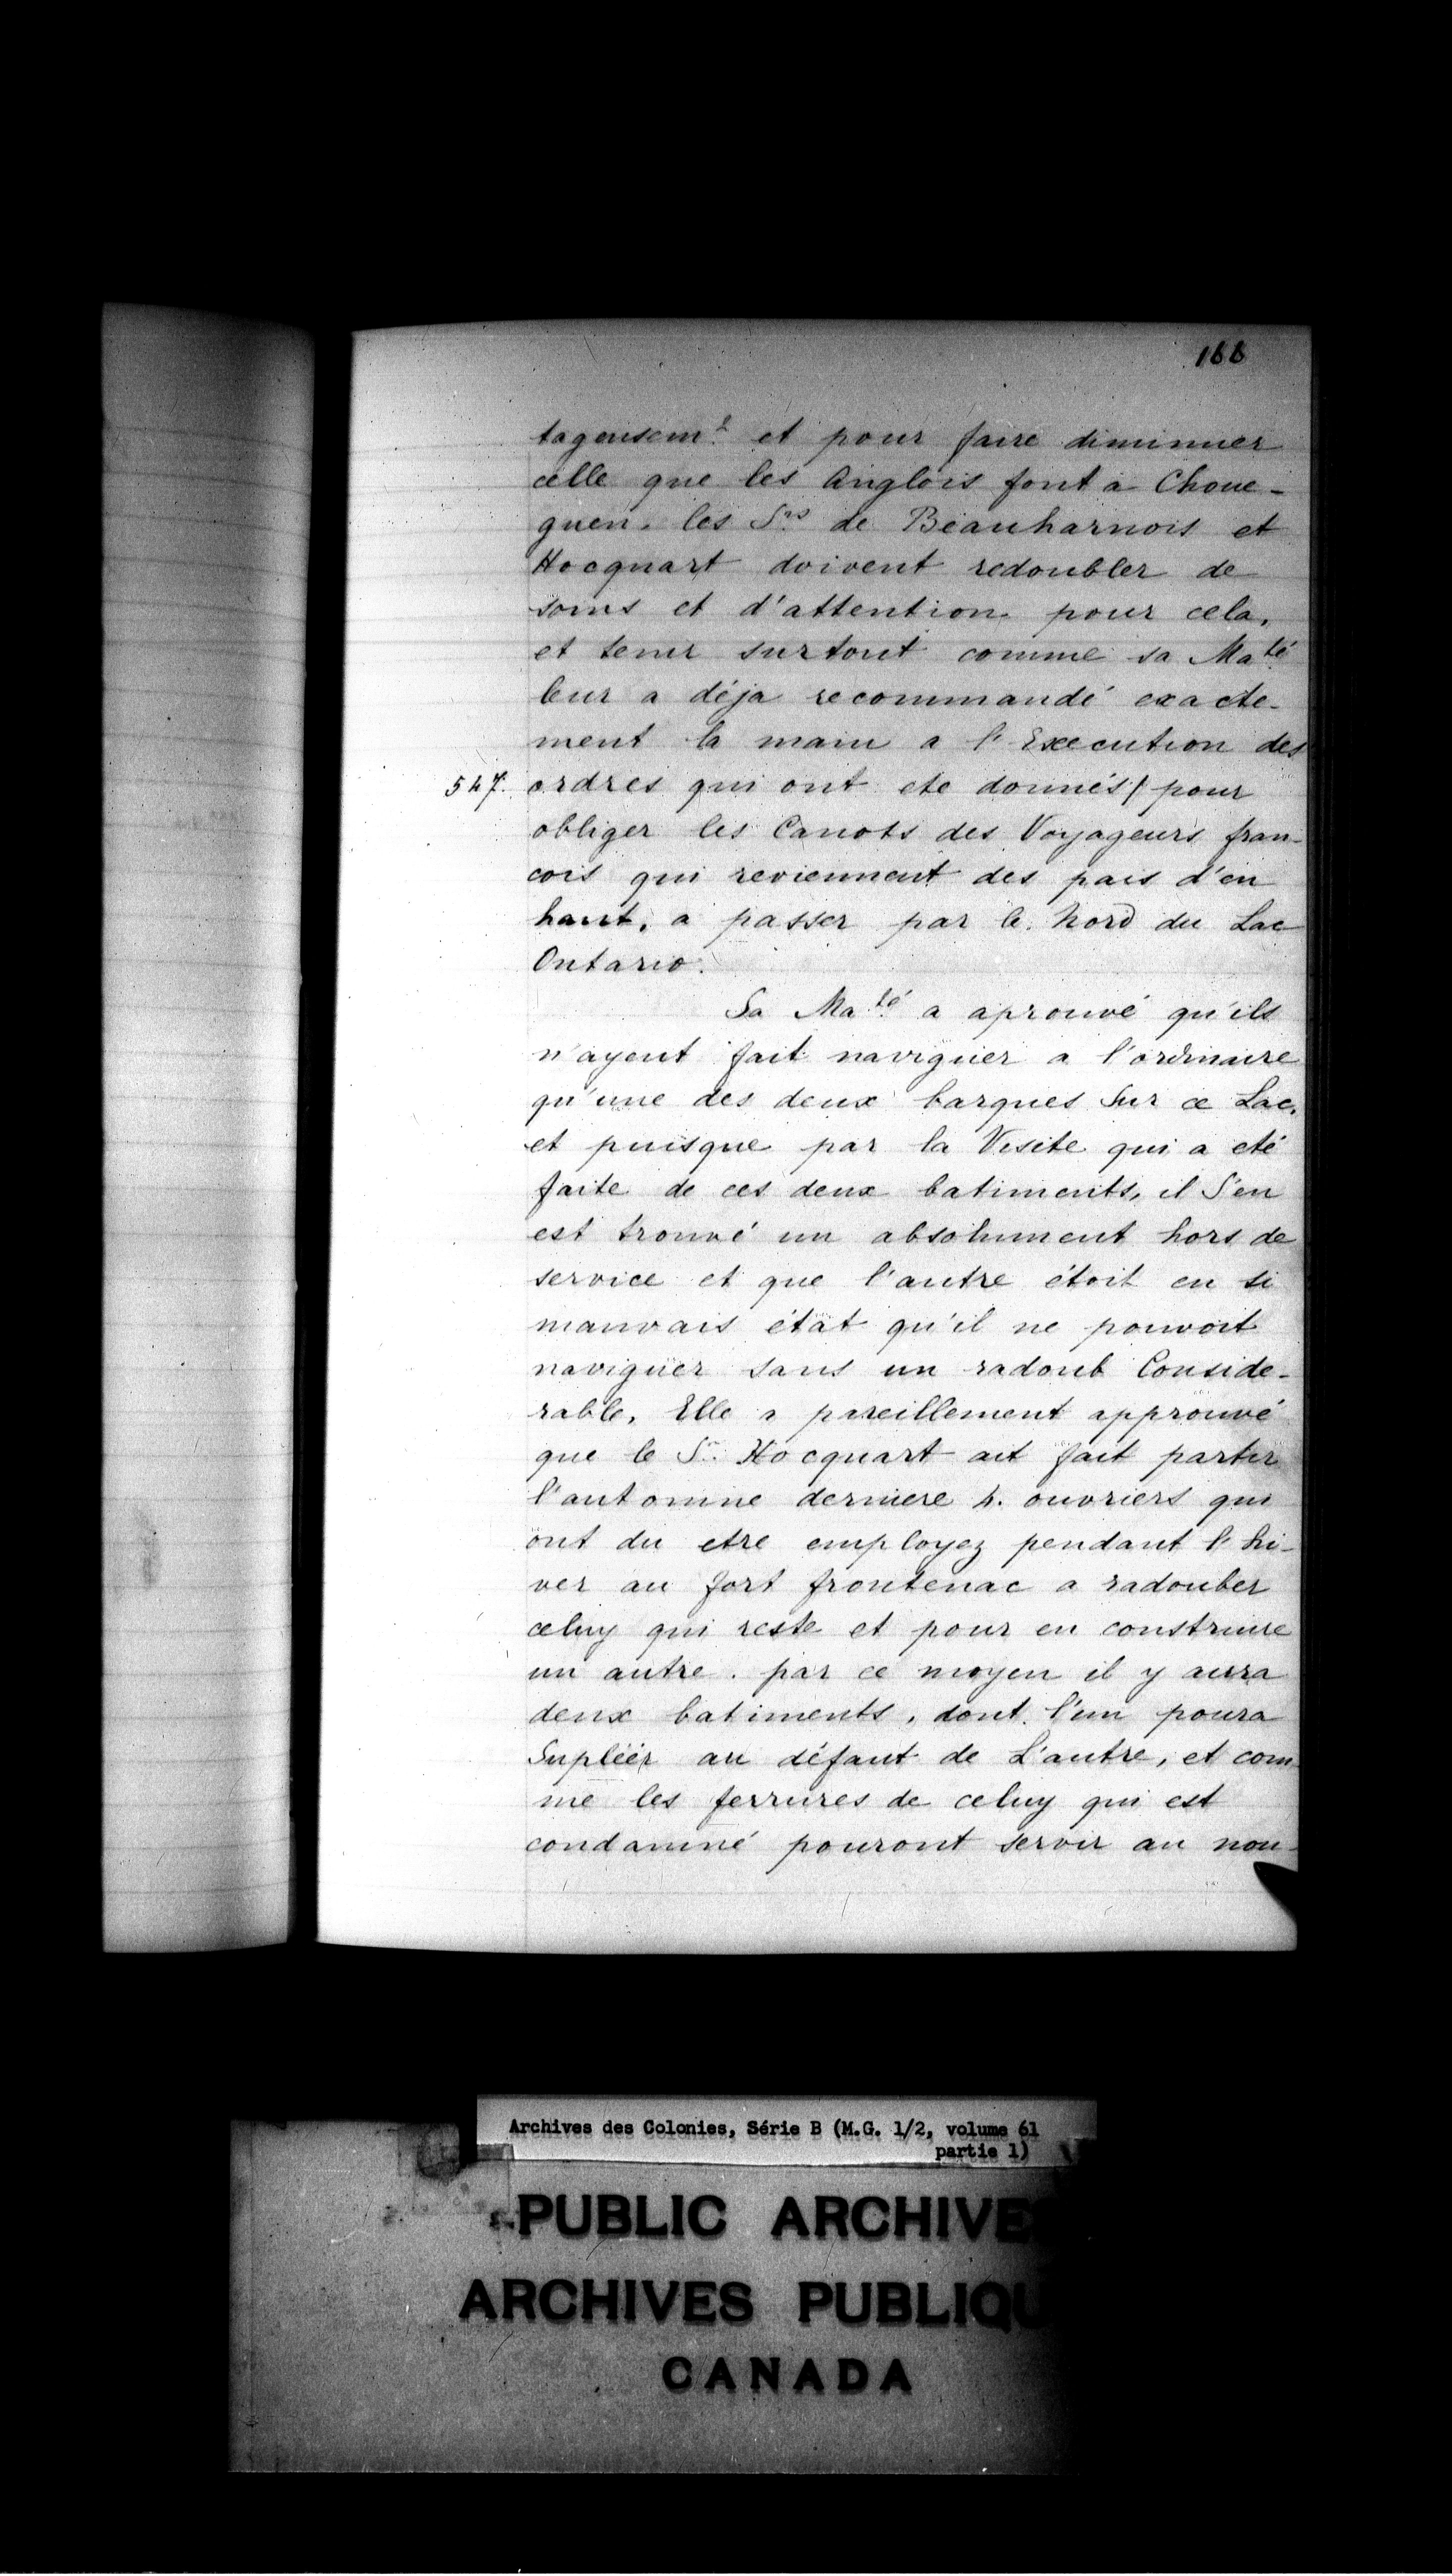 166
tageusem.t et pour faire diminuer
celle que les Anglois font a Choue-
guen. les S.rs de Beauharnois et
Hocquart doivent redoubler de
soins et d'attention pour cela,
et tenir surtout comme sa Ma.té
leur a déja recommandé exacte-
ment la main a l'Execution des
547. ordres qui ont ete donnés/ pour
obliger les Canots des Voyageurs fran-
cois qui reviennent des pais d'en
haut, a passer par le Nord du Lac
Ontario.
Sa Ma.té a aprouvé qu'ils
n'ayent fait naviguer a l'ordinaire
qu'une des deux barques Sur ce Lac,
et puisque par la Visite qui a eté
faite de ces deux batiments, il S'en
est trouvé un absolument hors de
service et que l'autre étoit en si
mauvais état qu'il ne pouvoit
naviguer sans un radoub Conside-
rable, Elle a pareillement approuvé
que le S.r Hocquart ait fait partir
l'automne derniere 4. ouvriers qui
ont du etre employez pendant l'hi-
ver au fort frontenac a radouber
celuy qui reste et pour en construire
un autre. par ce moyen il y aura
deux batiments, dont l'un poura
Supléer au défaut de L'autre, et com
me les ferrures de celuy qui est
condamné pouront servir au nou-
Archives des Colonies, Série B (M.G. 1/2, volume 61
partie 1)
PUBLIC ARCHIVE
ARCHIVES PUBLIQU
CANADA